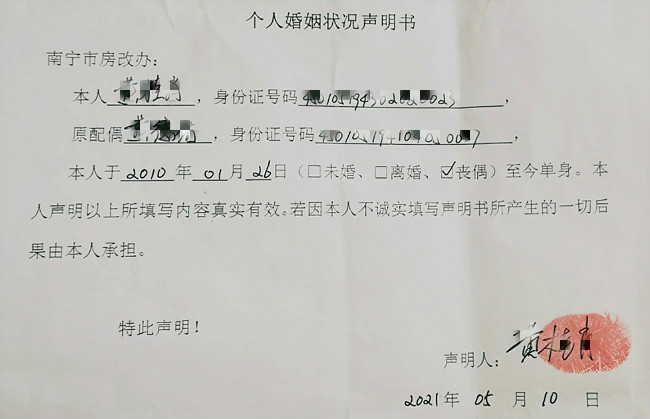 个人婚姻状况声明书
南宁市房改办:
本人，身份证号码，
原配偶，身份证号码，
本人于2010年01月26日（□未婚、□离婚、☑丧偶）至今单身。本
人声明以上所填写内容真实有效。若因本人不诚实填写声明书所产生的一切后
果由本人承担。
特此声明！
声明人：黄
2021年 05 月 10 日